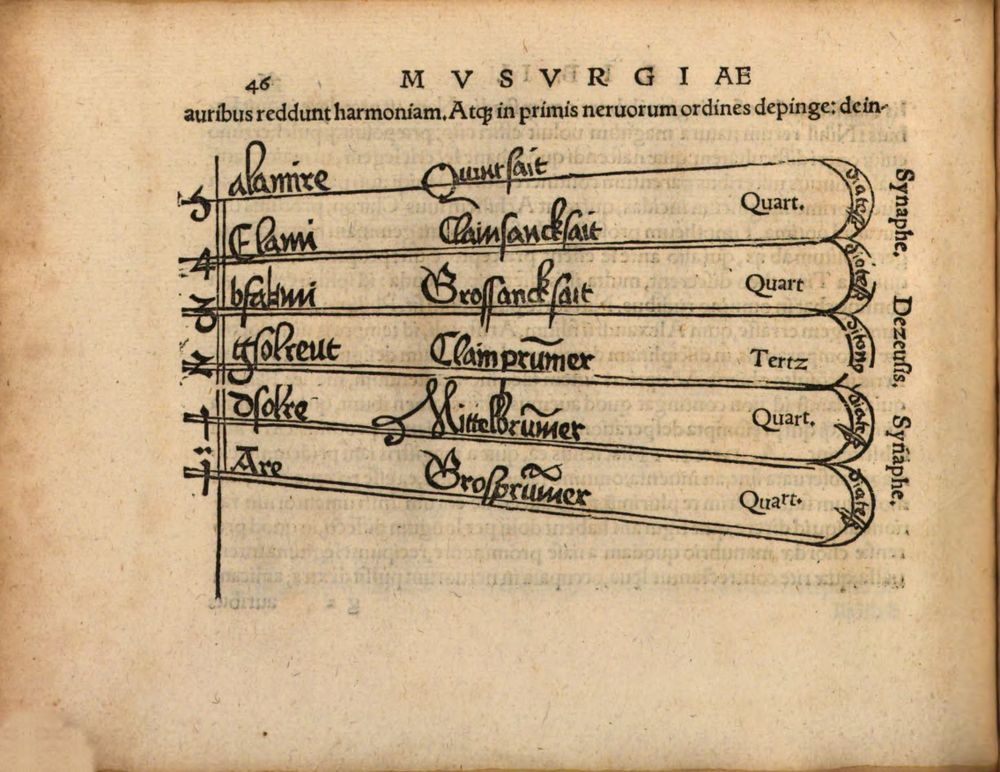 46 MVSVRGIAE
auribus reddunt harmoniam. Atq; in primis neruorum ordines depinge: dein-
5 alamire Quintsait Quart. diatess
Synaphe.
4 Elami Clainsancksait Quart diatess
3 bfabmi Grossancksait Tertz ditonꝰ
Dezeusis.
2 gsolreut Clainprūmer Quart. diatess
1 dsolre Mittelbrūmer Quart. diatess
Synaphe.
Are Grosprūmer